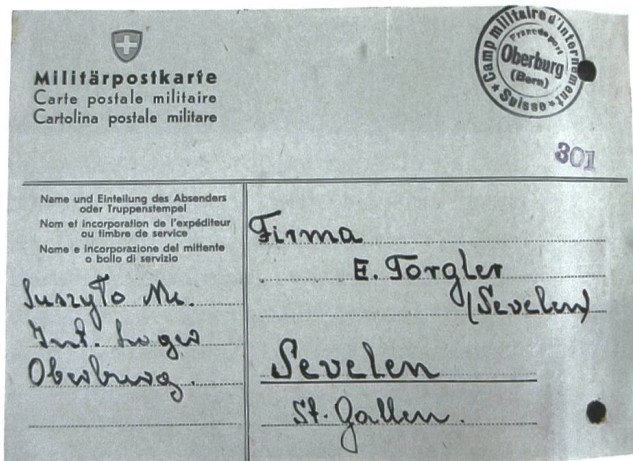 Militärpostkarte
Carte postale militaire
Cartolina postale militare
Camp militaire d'internement
Franc de port
Oberburg
(Bern)
Suisse
301
Name und Einteilung des Absenders
oder Truppenstempel
Nom et incorporation de l'expéditeur
ou timbre de service
Nome e incorporazione del mittente
o bollo di servizio
Int. Lager
Oberburg.
Firma
E. Torgler
(Sevelen)
Sevelen
St. Gallen.